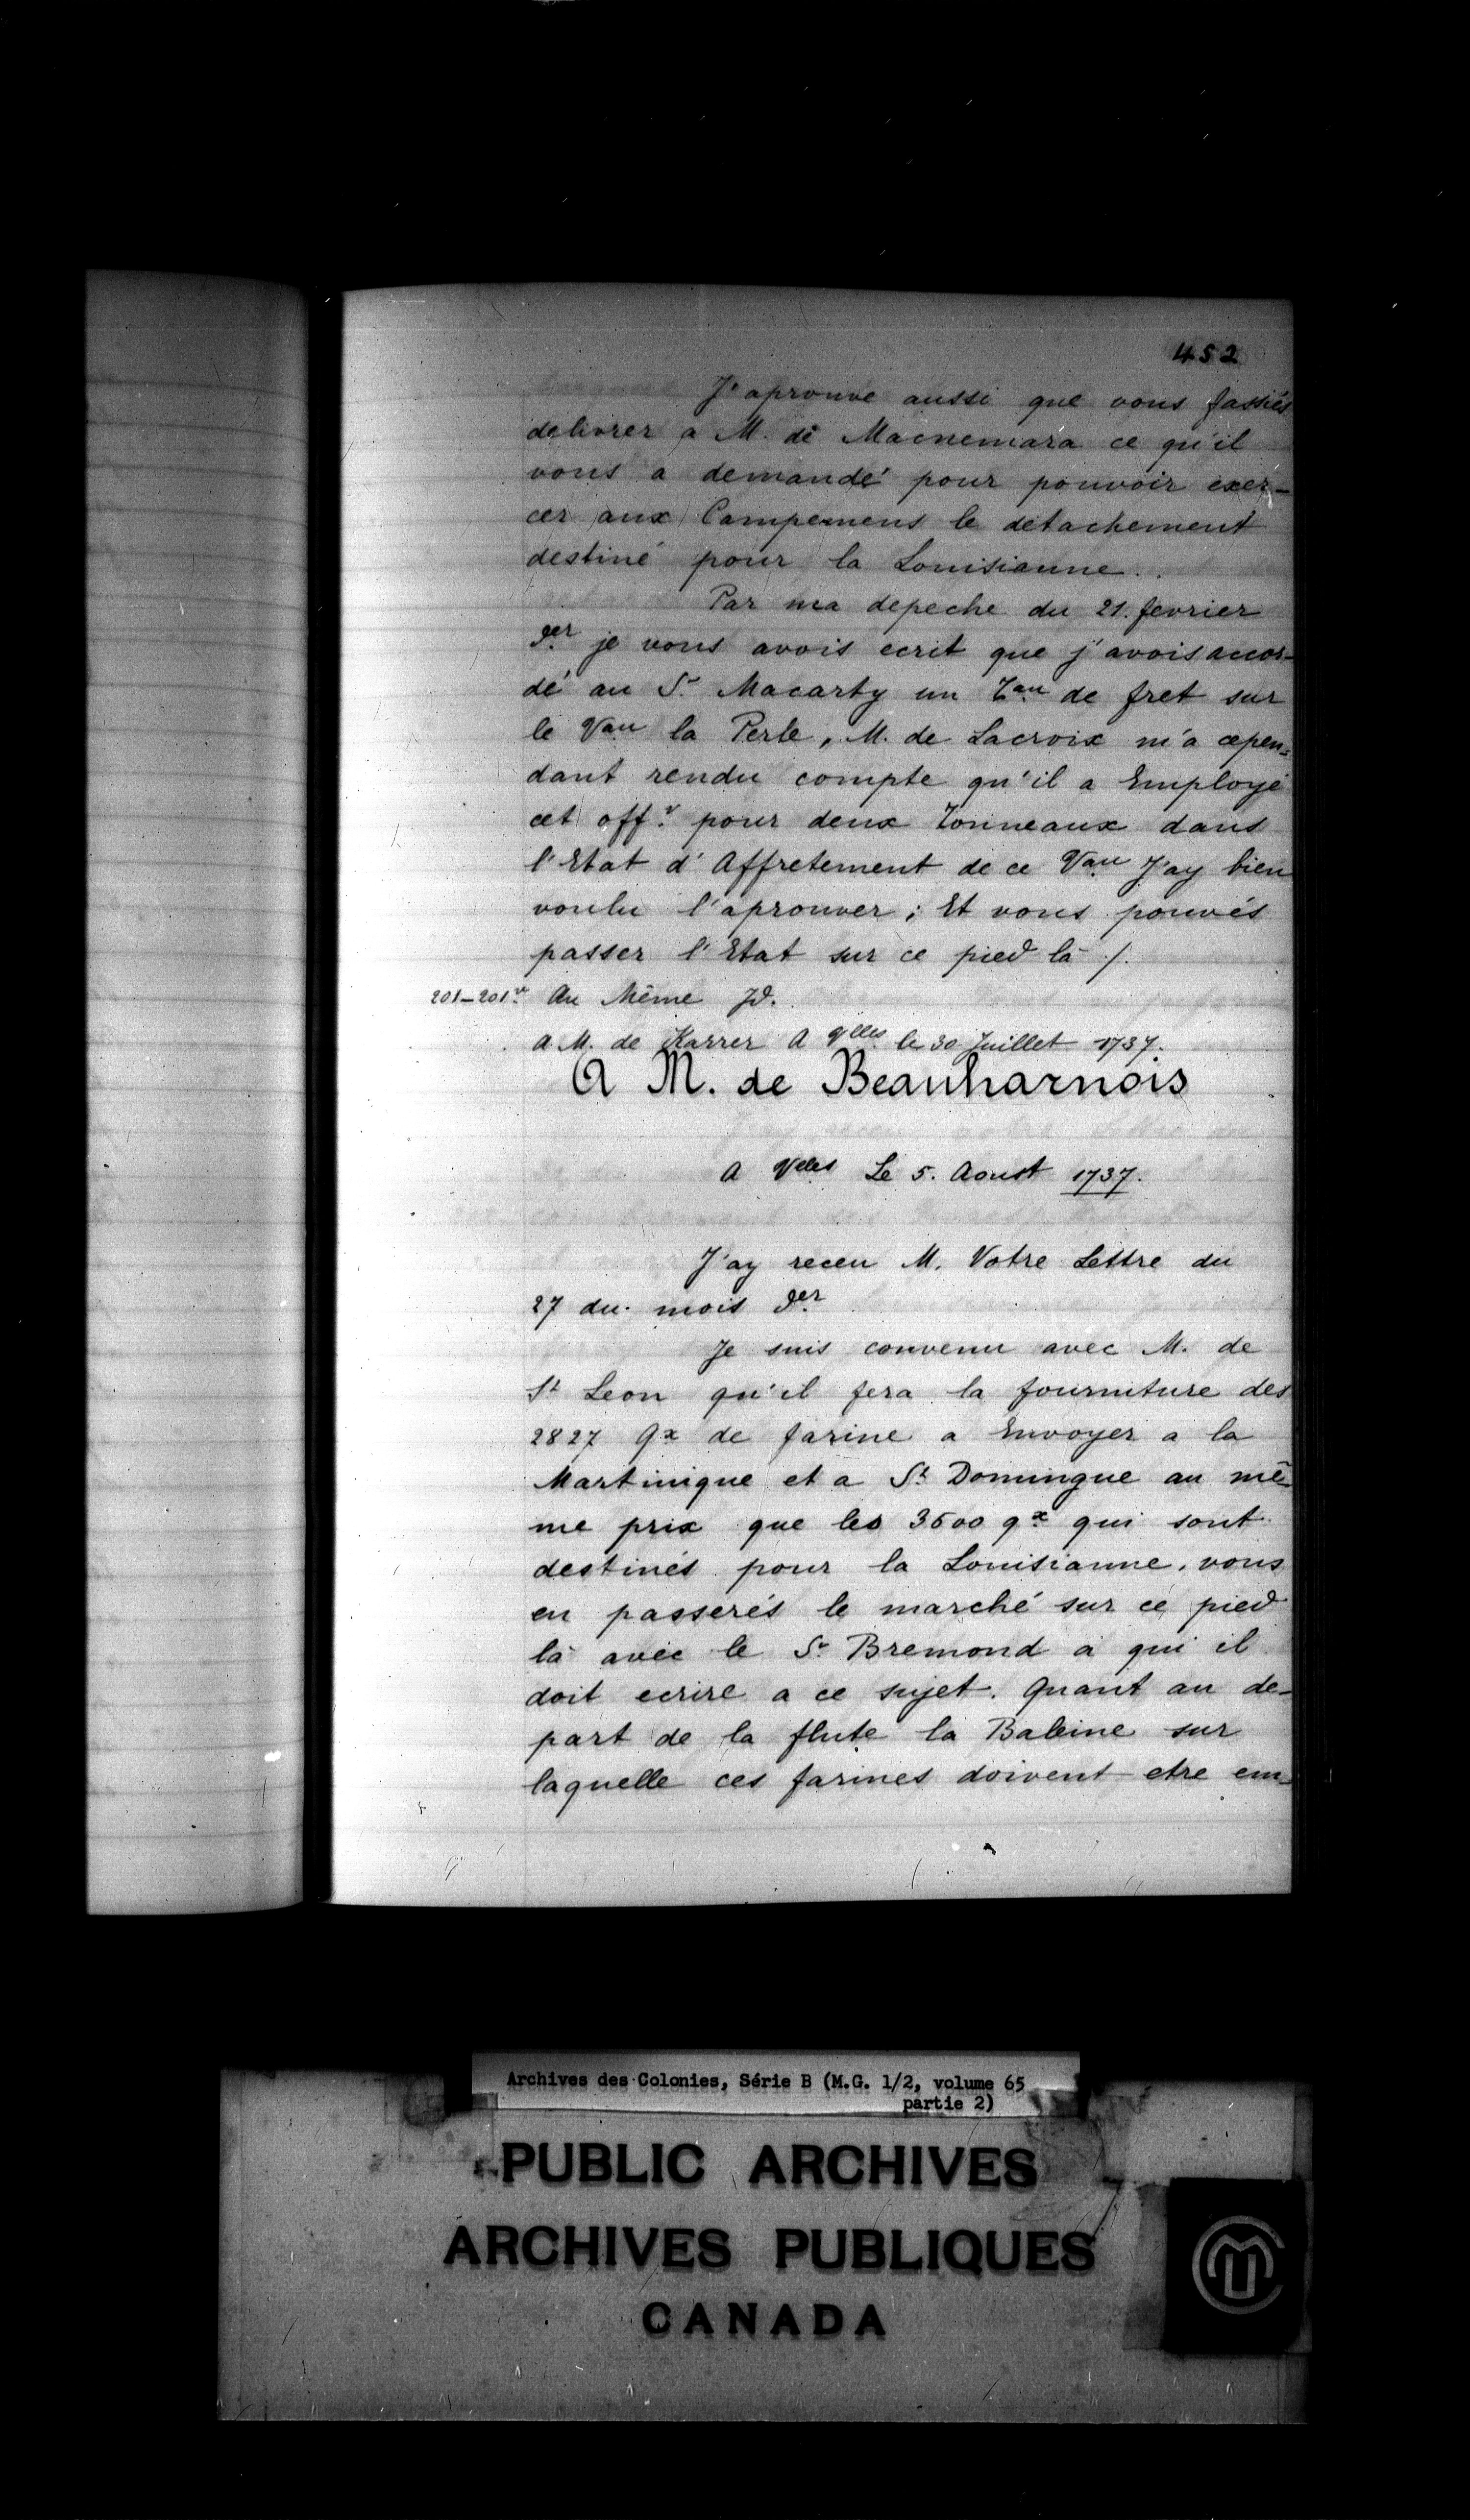 452
J'aprouve aussi que vous fassiés
delivrer a M. de Macnemara ce qu'il
vous a demandé pour pouvoir exer-
cer aux Campemens le détachement
destiné pour la Louisianne.
Par ma depeche du 21. fevrier
der je vous avois ecrit que j'avois accor-
dé au Sr Macarty un Tau de fret sur
le Vau la Perle, M. de Lacroix m'a cepen-
dant rendu compte qu'il a Employé
cet offr pour deux Tonneaux dans
l'Etat d'Affretement de ce Vau J'ay bien
voulu l'aprouver; Et vous pouvés
passer l'Etat sur ce pied là /.
201-201vo Au Même Jd.
a. M. de Karrer A Vlles le 30 Juillet 1737.
A M. de Beauharnois
A Vlles Le 5. Aoust 1737.
J'ay receu M. Votre Lettre du
27 du mois der
Je suis convenu avec M. de
St Leon qu'il fera la fourniture des
2827 qx de farine a Envoyer a la
Martinique et a St Domingue au mê-
me prix que les 3600 qx qui sont
destinés pour la Louisianne, vous
en passerés le marché sur ce pied
là avec le Sr Bremond a qui il
doit ecrire a ce sujet. Quant au de-
part de la flute la Baleine sur
laquelle ces farines doivent etre em-
Archives des Colonies, Série B (M.G. 1/2, volume 65
partie 2)
PUBLIC ARCHIVES
ARCHIVES PUBLIQUES
CANADA